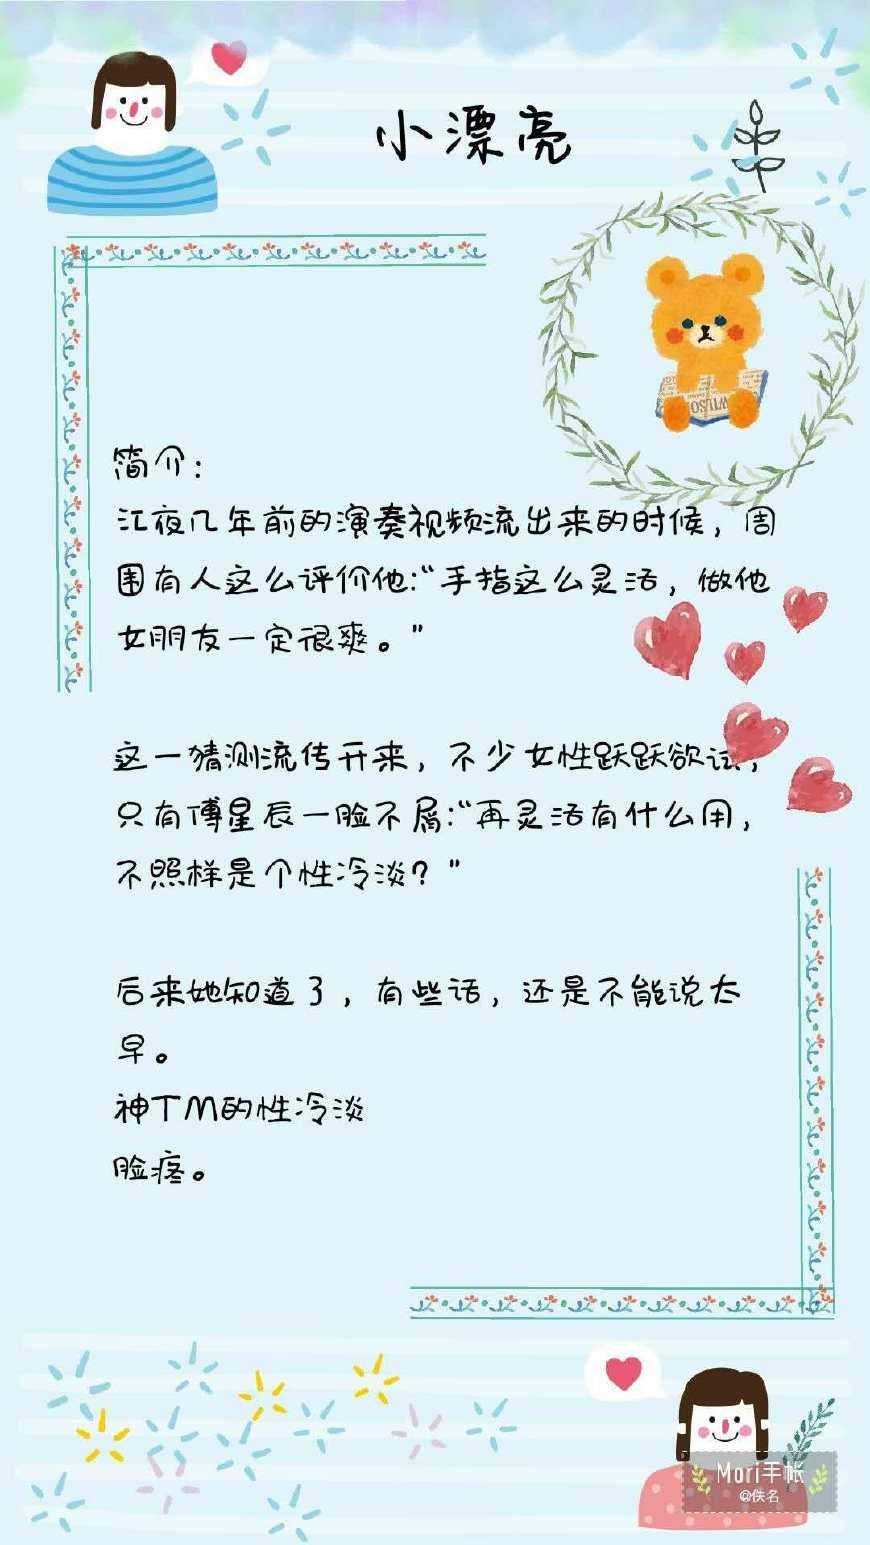 小漂亮
简介：
江夜几年前的演奏视频流出来的时候，周
围有人这么评价他:“手指这么灵活，做他
女朋友一定很爽。”
这一猜测流传开来，不少女性跃跃欲试，
只有傅星辰一脸不屑:“再灵活有什么用，
不照样是个性冷淡？”
后来她知道了，有些话，还是不能说太
早。
神TM的性冷淡
脸疼。
Mori手帐
@佚名